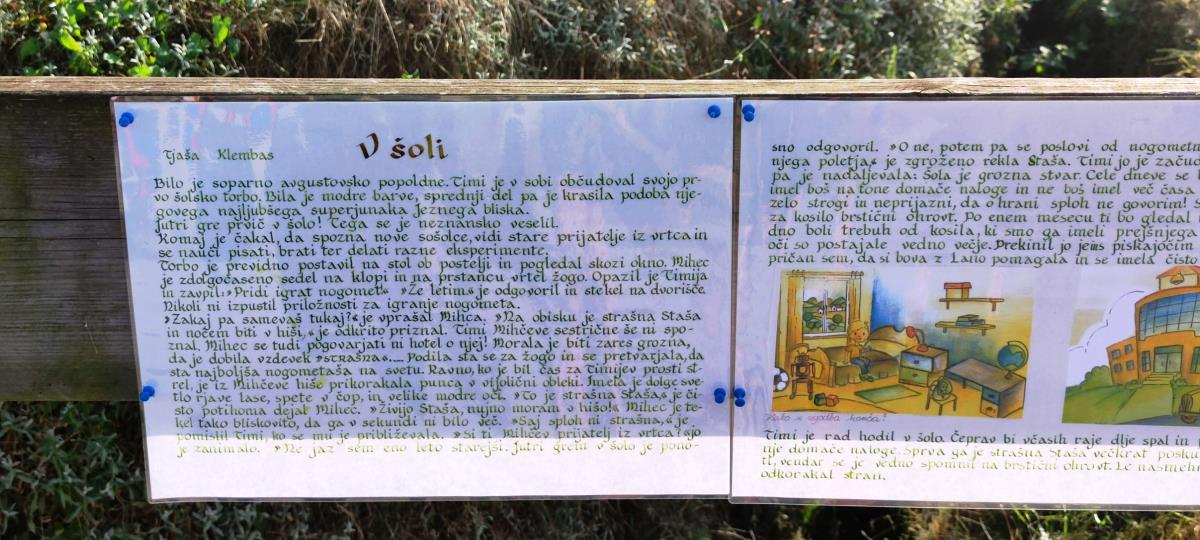 Tjaša Klembas
V šoli
Bilo je soparno avgustovsko popoldne. Timi je v sobi občudoval svojo pr-
vo šolsko torbo. Bila je modre barve, sprednji del pa je krasila podoba nje-
govega najljubšega superjunaka Jeznega bliska.
Jutri gre prvič v šolo! Tega se je neznansko veselil.
Komaj je čakal, da spozna nove sošolce, vidi stare prijatelje iz vrtca in
se nauči pisati, brati ter delati razne eksperimente.
Torbo je previdno postavil na stol ob postelji in pogledal skozi okno. Mihec
je zdolgočaseno sedel na klopi in na prstancu vrtel žogo. Opazil je Timija
in zavpil: »Pridi igrat nogomet!« »Že letim« je odgovoril in stekel na dvorišče.
Nikoli ni izpustil priložnosti za igranje nogometa.
»Zakaj pa samevaš tukaj?« je vprašal Mihca. »Na obisku je strašna Staša
in nočem biti v hiši,« je odkrito priznal. Timi Mihčeve sestrične še ni spo-
znal. Mihec se tudi pogovarjati ni hotel o njej! Morala je biti zares grozna,
da je dobila vzdevek »strašna«.... Podila sta se za žogo in se pretvarjala, da
sta najboljša nogometaša na svetu. Ravno, ko je bil čas za Timijev prosti st-
rel, je iz Mihčeve hiše prikorakala punca v vijolični obleki. Imela je dolge sve-
tlo rjave lase, spete v čop, in velike modre oči. »To je strašna Staša,« je či-
sto potihoma dejal Mihec. »Živijo Staša, nujno moram v hišo!« Mihec je te-
kel tako bliskovito, da ga v sekundi ni bilo več. »Saj sploh ni strašna,« je
pomislil Timi, ko se mu je približevala. »Si ti Mihčev prijatelj iz vrtca?« jo
je zanimalo. »Ne jaz sem eno leto starejši. Jutri grem v šolo je pono-
sno odgovoril. »O ne, potem pa se poslovi od nogometn
njega poletja,« je zgroženo rekla Staša. Timi jo je začud
pa je nadaljevala: Šola je grozna stvar. Cele dneve se
imel boš na tone domače naloge in ne boš imel več časa
zelo strogi in neprijazni, da o hrani sploh ne govorim! S
za kosilo brstični ohrovt. Po enem mesecu ti bo gledal
dno boli trebuh od kosila, ki smo ga imeli prejšnjega
oči so postajale vedno večje. Prekinil jo je piskajočim
pričan sem, da si bova z Lano pomagala in se imela čisto
Kako se zgodba konča?
Timi je rad hodil v šolo. Čeprav bi včasih raje dlje spal in
nje domače naloge. Sprva ga je strašna Staša večkrat posku
ti, vendar se je vedno spomnil na brstični ohrovt. Le nasmehn
odkorakal stran.